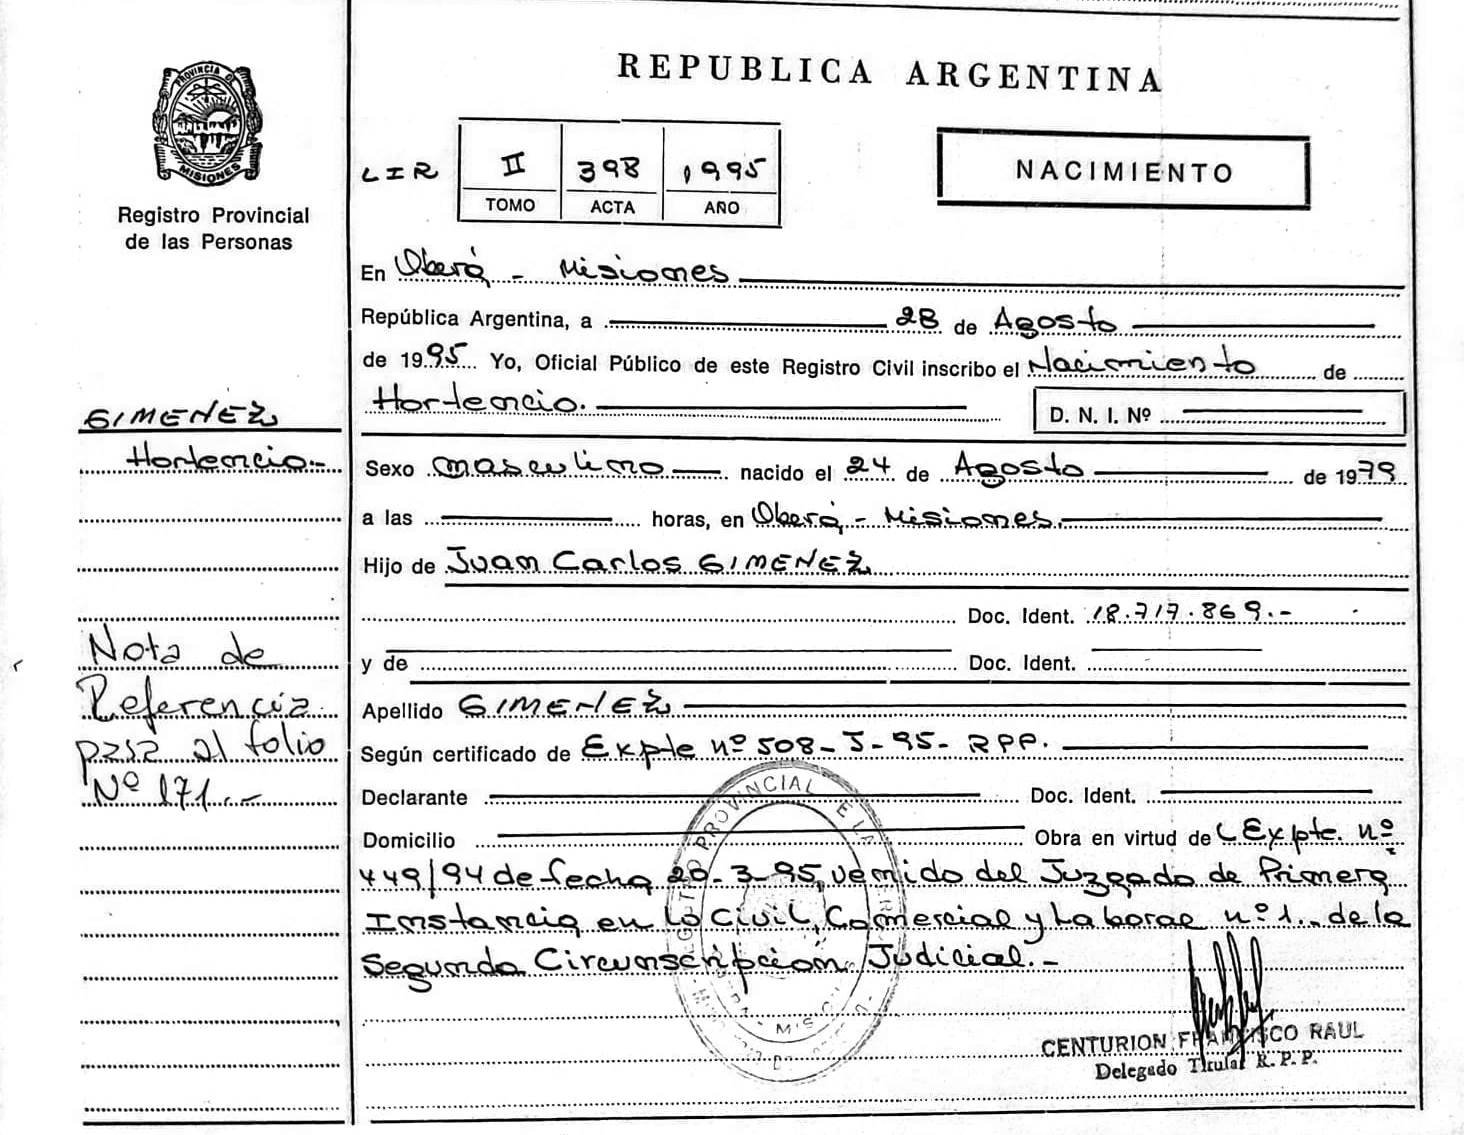 REPUBLICA ARGENTINA
PROVINCIA DE
MISIONES
Registro Provincial
de las Personas
LIR II 398 1995
TOMO ACTA AÑO
NACIMIENTO
En Oberá - Misiones
República Argentina, a 28 de Agosto
de 1995 Yo, Oficial Público de este Registro Civil inscribo el Nacimiento de
Hortencio. D. N. I. Nº
GIMENEZ
Hortencio.-
Sexo masculino nacido el 24 de Agosto de 1979
a las horas, en Oberá - Misiones.
Hijo de Juan Carlos GIMENEZ
Doc. Ident. 18.717.869.-
y de Doc. Ident.
Apellido GIMENEZ
Según certificado de Expte nº 508-J-95- RPP.
Declarante Doc. Ident.
Domicilio Obra en virtud de Expte. nº
449/94 de fecha 20-3-95, venido del Juzgado de Primera
Instancia en lo Civil, Comercial y Laboral nº 1.. de la
Segunda Circunscripcion Judicial.-
Nota de
Referencia
pasa al folio
Nº 171.-
REGISTRO PROVINCIAL DE LA
MISIONES
CENTURION FRANCISCO RAUL
Delegado Titular R. P. P.